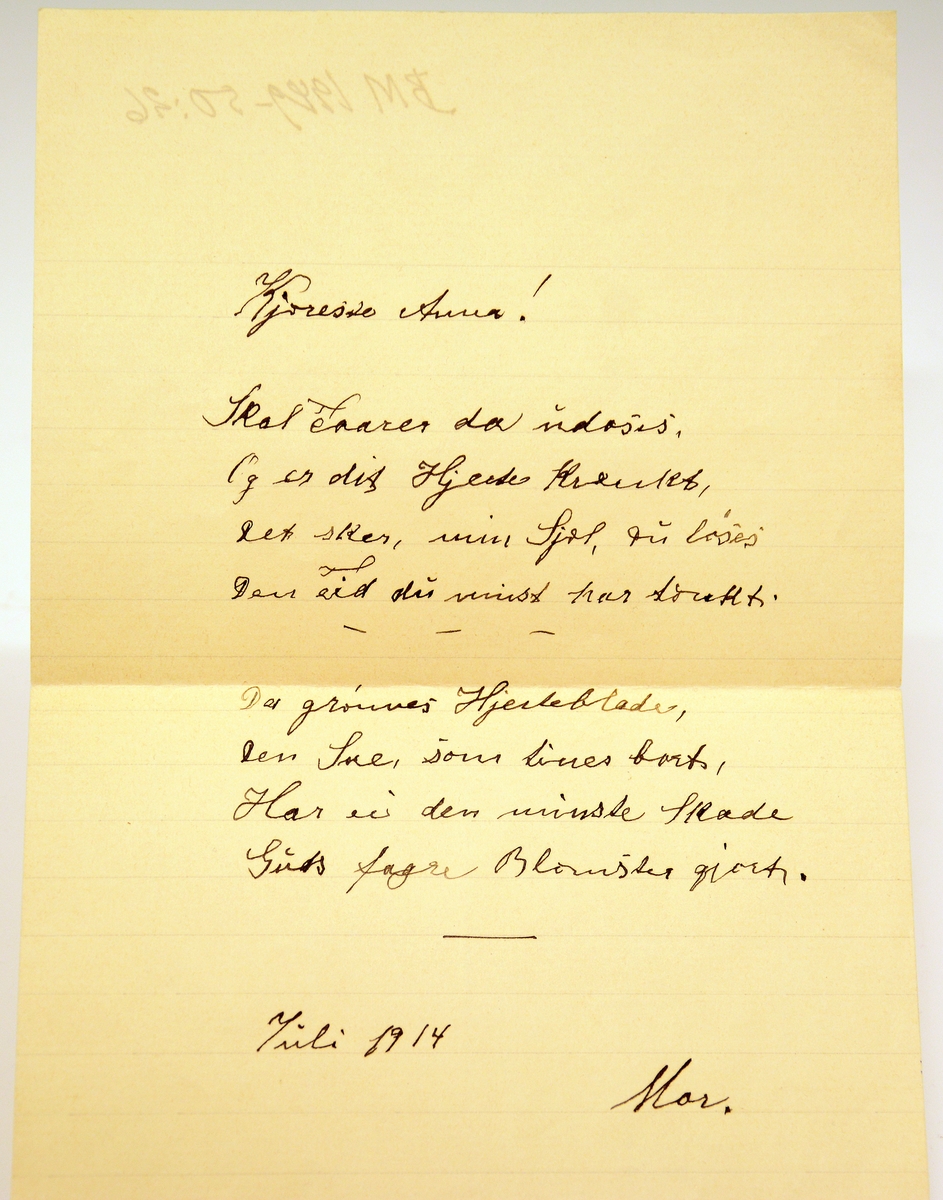 BM 1989-50:26
Kjæreste Anna!
Skal Taarer da udøses,
Og er dit Hjerte krænkt,
Det sker, min Sjæl, du løses
Den Tid du minst har tænkt.
— — —
Da grønnes Hjerteblade,
Den Sne, som tines bort,
Har ei den minste Skade
Guds fagre Blomster gjort.
Juli 1914
Mor.